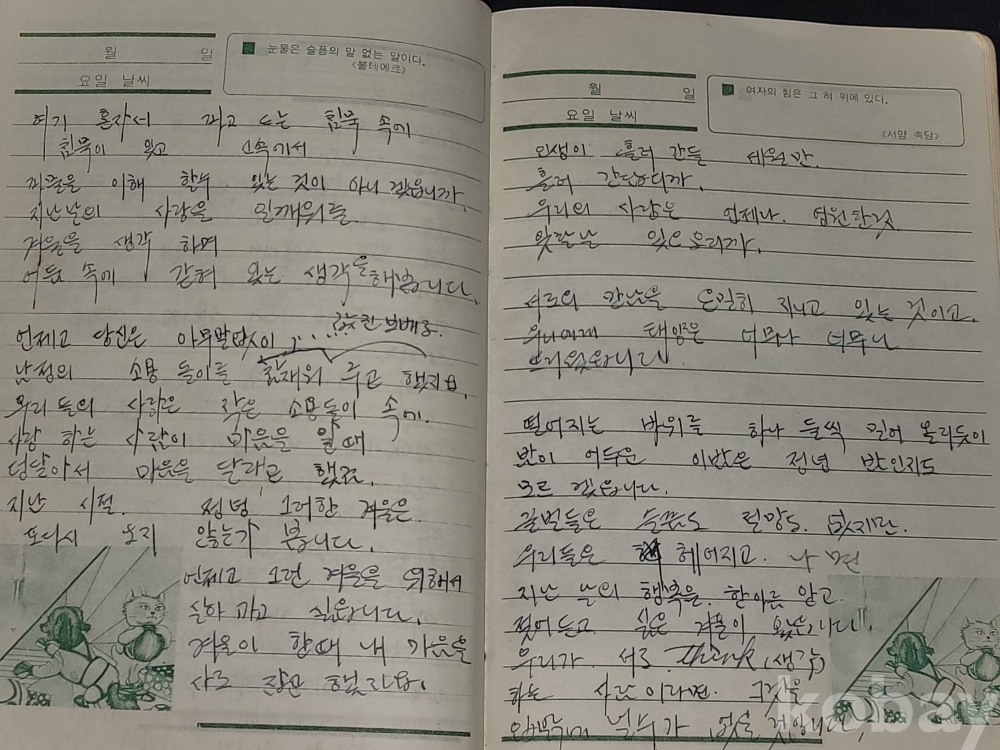 월 일
요일 날씨
눈물은 슬픔의 말 없는 말이다.
<볼테에르>
여기 혼자서 파고 드는 침묵 속에
침묵이 있고 속에서
겨울을 이해 할수 있는 것이 아니 겠읍니까.
지난날의 사랑을 일깨워준
겨울을 생각 하며
어둠 속에 갇혀 있는 생각을해봅니다.
언제고 당신은 아무말없이
소용 돌이를 주고 했지요
우리 둘의 사랑은 작은 소용돌이 속에
사랑 하는 사람이 마음을 때
덩달아서 마음을 달래고 했죠.
지난 시절. 정녕 그러한 겨울은
또다시 오지 않는가 봅니다.
언제고 그런 겨울을 위해서
살아 가고 싶읍니다.
겨울이 할때 내 가슴을
했지요.
월 일
요일 날씨
여자의 힘은 그 혀 위에 있다.
<서양 속담>
인생이 흘러 간들 세월만
흘러 간답니까.
우리의 사랑은 언제나 영원한것
잊을날 있으오리까.
서로의 만남을 은밀히 지니고 있는 것이고.
우리에게 태양은 너무나 너무나
뜨거웠읍니다.
떨어지는 바위를 하나 둘씩 밀어 올리듯이
밤이 어두운 이밤은 정녕 밤인지도
모르 겠읍니다.
길벗들은 슬픔도 절망도 없지만.
우리들은 헤어지고. 나 면
지난 날의 행복을 한아름 안고.
싶은 겨울이 왔읍니다.
우리가 서로 Think (생각)
하는 사람 이라면. 그것은
수가 없을 것입니다.
kobay